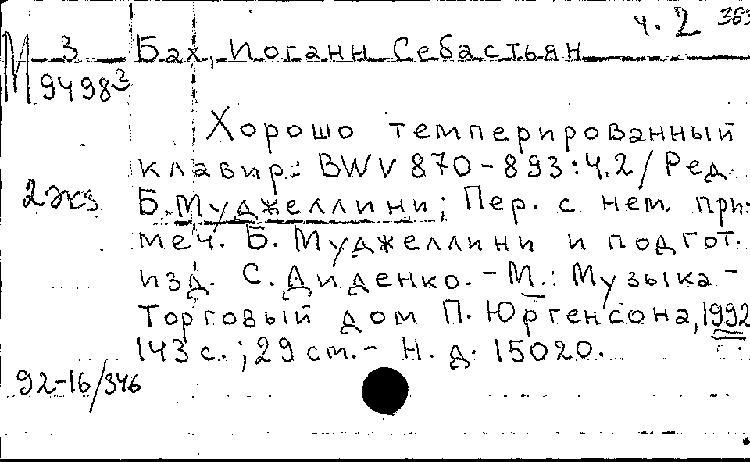 ч. 2 363
М 3 Бах, Иоганн Себастьян
9498³
Хорошо темперированный
клавир: BWV 870-893: ч.2 / Ред.
2 экз Б. Муджеллини; Пер. с нем. при-
меч. Б. Муджеллини и подгот.
изд. С. Диденко. - М.: Музыка -
Торговый дом П. Юргенсона, 1992
143 с.; 29 cm. - Н. д. 15020.
92-16/346